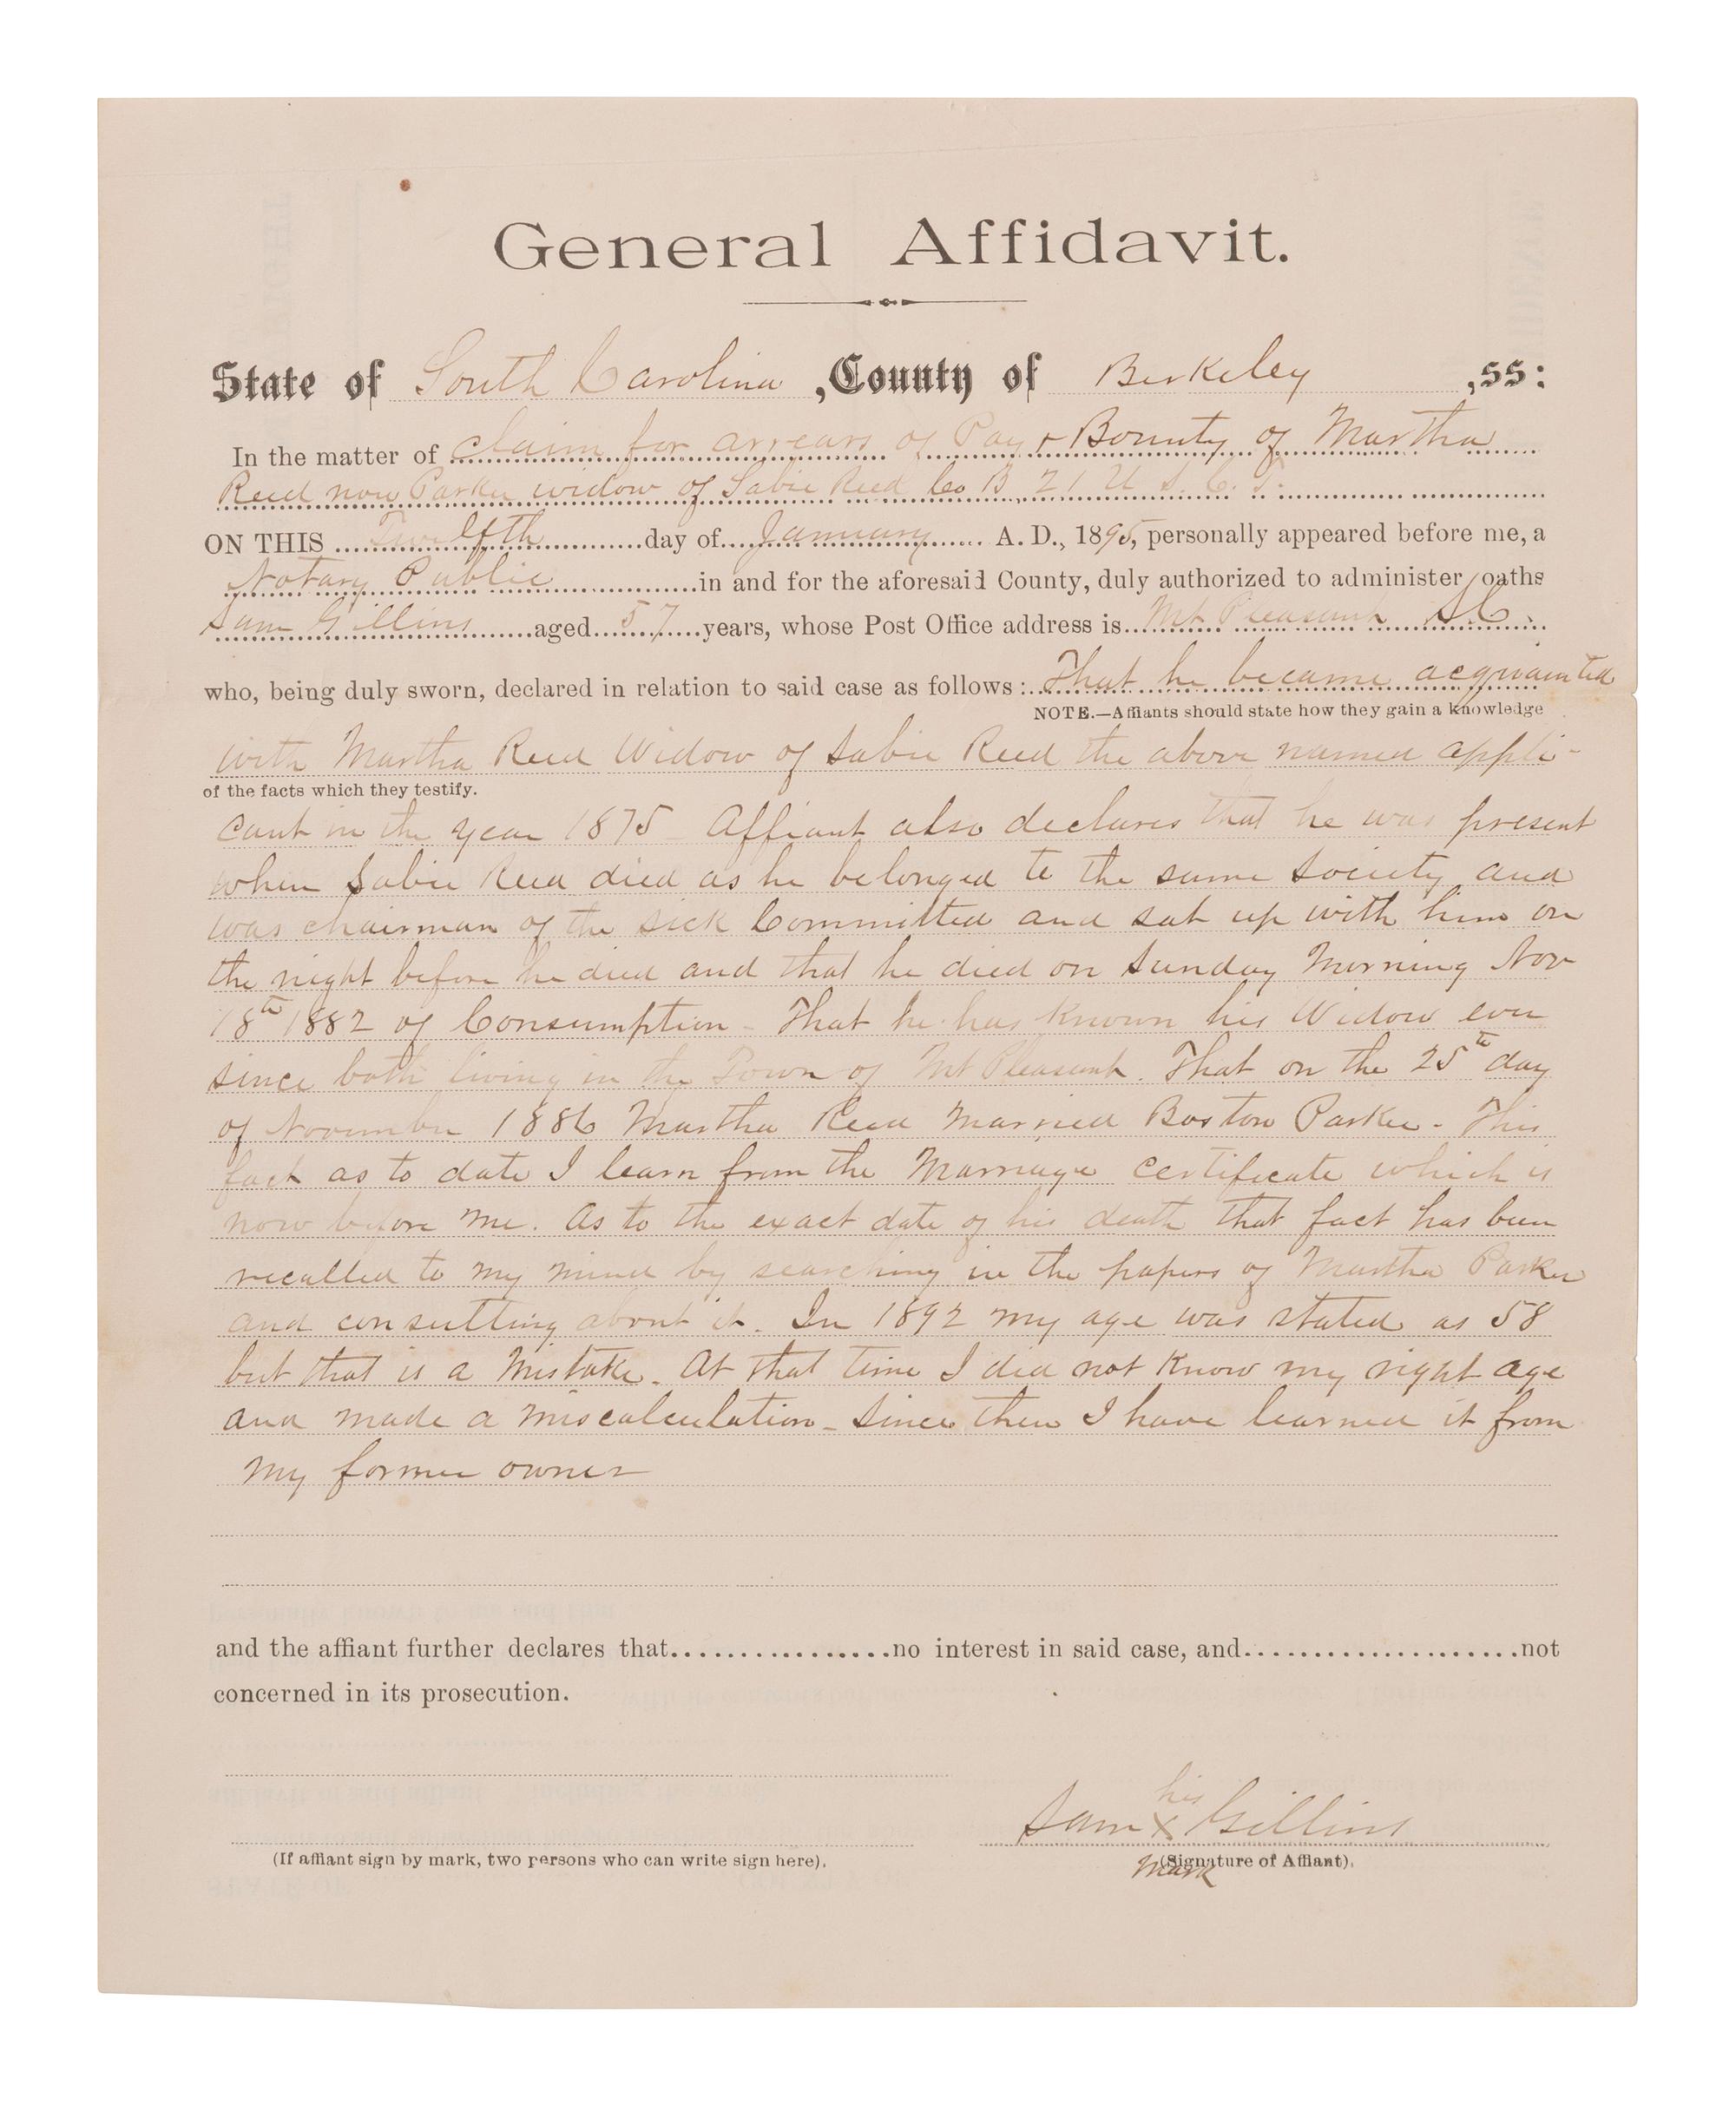 General Affidavit.
State of South Carolina, County of Berkeley, ss:
In the matter of claim for arrears of Pay & Bounty of Martha
Reed now Parker widow of Sabie Reed Co B, 21 U. S. C. T.
ON THIS Twelfth day of January A. D., 1895, personally appeared before me, a
Notary Public in and for the aforesaid County, duly authorized to administer oaths
Sam Gillins aged 57 years, whose Post Office address is Mt Pleasant S.C.
who, being duly sworn, declared in relation to said case as follows: That he became acquainted
NOTE.—Affiants should state how they gain a knowledge
with Martha Reed Widow of Sabie Reed the above named appli-
of the facts which they testify.
cant in the year 1875 Affiant also declares that he was present
when Sabie Reed died as he belonged to the same Society and
was chairman of the sick Committed and sat up with him on
the night before he died and that he died on Sunday Morning Nov
18th 1882 of Consumption - That he has known his Widow ever
since both living in the Town of Mt Pleasant. That on the 25th day
of November 1886 Martha Reed Married Boston Parker - This
fact as to date I learn from the Marriage certificate which is
now before me. As to the exact date of his death that fact has been
recalled to my mind by searching in the papers of Martha Parker
and consulting about it. In 1892 my age was stated as 58
but that is a Mistake. At that time I did not know my right age
and made a miscalculation - Since then I have learned it from
my former owner
and the affiant further declares that................no interest in said case, and....................not
concerned in its prosecution.
his
Sam X Gillins
(If affiant sign by mark, two persons who can write sign here). (Signature of Affiant).
Mark